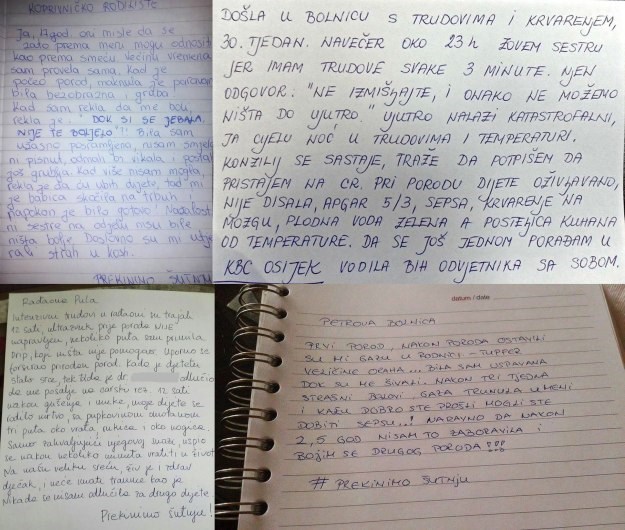 KOPRIVNIČKO RODILIŠTE
Ja, god. oni misle da se
zato prema meni mogu odnositi
kao prema smeću. Većinu vremena
sam provela sama. Kad je
počeo porod,
bila bezobrazna i gruba
Kad sam rekla da me boli,
rekla je: "DOK SI SE JEBALA,
NIJE TE BOLJELO"!! Bila sam
užasno posramljena, nisam smjela
ni pisnut, odmah bi vikala i postala
još grublja. Kad više nisam mogla,
rekla je da ću ubiti dijete, tad mi
je babica skočila na trbuh i
napokon je bilo gotovo!
ni sestre na odjelu nisu bile
ništa bolje. Doslovno su mi utje
rali strah u kosti.
PREKINIMO ŠUTNJU
DOŠLA U BOLNICU S TRUDOVIMA I KRVARENJEM,
30. TJEDAN. NAVEČER OKO 23 h ZOVEM SESTRU
JER IMAM TRUDOVE SVAKE 3 MINUTE. NJEN
ODGOVOR: "NE IZMIŠLJAJTE, I ONAKO NE MOŽEMO
NIŠTA DO UJUTRO." UJUTRO NALAZI KATASTROFALNI,
JA CIJELU NOĆ U TRUDOVIMA I TEMPERATURI.
KONZILIJ SE SASTAJE, TRAŽE DA POTPIŠEM DA
PRISTAJEM NA CR. PRI PORODU DIJETE OŽIVLJAVANO,
NIJE DISALA, APGAR 5/3, SEPSA, KRVARENJE NA
MOZGU, PLODNA VODA ZELENA A POSTELJICA KUHANA
OD TEMPERATURE. DA SE JOŠ JEDNOM PORAĐAM U
KBC OSIJEK VODILA BIH ODVJETNIKA SA SOBOM.
Rađaona Pula
Intenzivni trudovi u rađaoni su trajali
12 sati, ultrazvuk prije poroda NIJE
napravljen, nekoliko puta sam primila
drip, koji ništa nije pomogao. Uporno se
forsirao prirodan porod. Kada je djetetu
slabo srce, tek tada je dr. odlučio
da me pošalje na carski rez. 12 sati
nakon gušenja i muke, moje dijete se
rodilo mrtvo, sa pupkovinom omotanom
tri puta oko vrata, ručice i oko nogice.
Samo zahvaljujući njegovoj snazi, uspio
se nakon nekoliko minuta vratiti u život
Na našu veliku sreću, živ je i zdrav
dječak, i neće imati traume kao ja.
Nikada se nisam odlučila za drugo dijete.
Prekinimo šutnju!
datum / date
PETROVA BOLNICA
PRVI POROD, NAKON PORODA OSTAVILI
SU MI GAZU U RODNICI - TUPFER
VELIČINE ORAHA... BILA SAM USPAVANA
DOK SU ME ŠIVALI. NAKON TRI TJEDNA
STRAŠNI BOLOVI. GAZA TRUNULA U MENI
I KAŽU DOBRO STE PROŠLI MOGLI STE
DOBITI SEPSU...! NARAVNO DA NAKON
2,5 GOD NISAM TO ZABORAVILA I
BOJIM SE DRUGOG PORODA!!!
# PREKINIMO ŠUTNJU